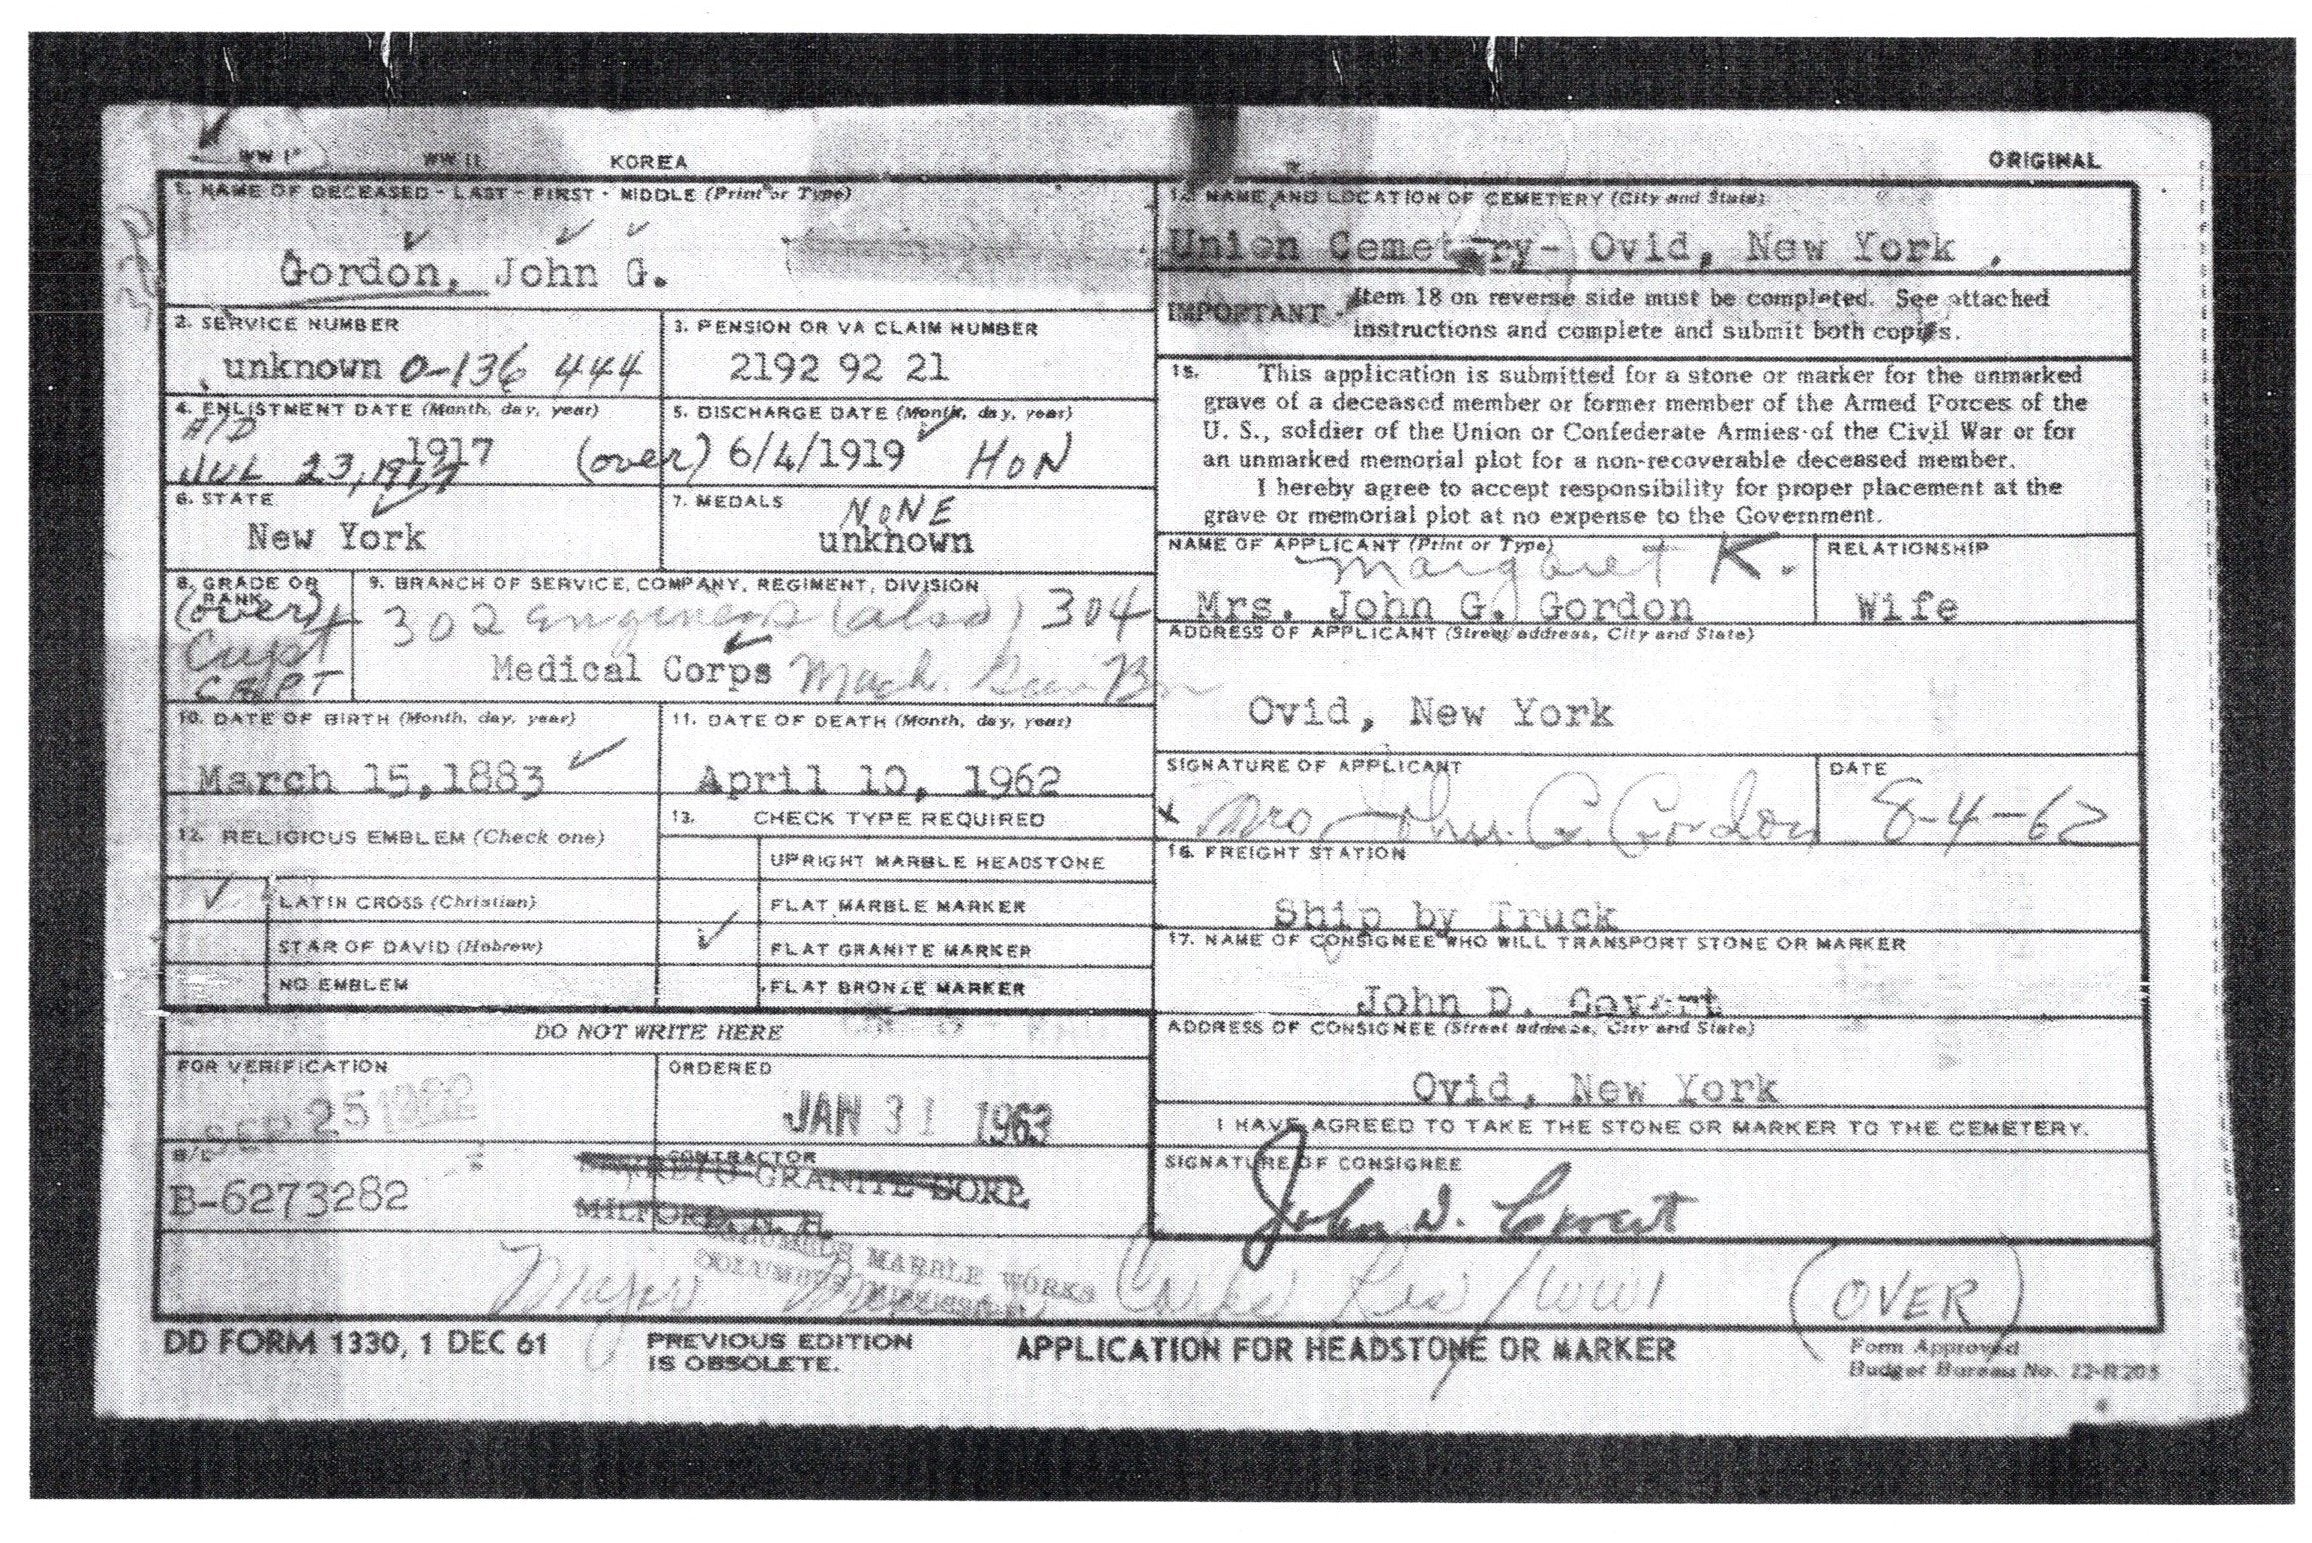 WW I WW II KOREA ORIGINAL
1. NAME OF DECEASED - LAST - FIRST - MIDDLE (Print or Type)
Gordon, John G.
2. SERVICE NUMBER
unknown 0-136 444
3. PENSION OR VA CLAIM NUMBER
2192 92 21
4. ENLISTMENT DATE (Month, day, year)
A/D
1917
JUL 23, 1917 (over)
5. DISCHARGE DATE (Month, day, year)
6/4/1919 HON
6. STATE
New York
7. MEDALS
NONE
unknown
8. GRADE OR RANK
(over)
Capt
CAPT
9. BRANCH OF SERVICE, COMPANY, REGIMENT, DIVISION
302 Engineers (also) 304
Medical Corps Mach. Gun Bn
10. DATE OF BIRTH (Month, day, year)
March 15, 1883
11. DATE OF DEATH (Month, day, year)
April 10, 1962
12. RELIGIOUS EMBLEM (Check one)
LATIN CROSS (Christian)
STAR OF DAVID (Hebrew)
NO EMBLEM
13. CHECK TYPE REQUIRED
UPRIGHT MARBLE HEADSTONE
FLAT MARBLE MARKER
FLAT GRANITE MARKER
FLAT BRONZE MARKER
DO NOT WRITE HERE
FOR VERIFICATION
SEP 25 1962
ORDERED
JAN 31 1963
B/L
B-6273282
CONTRACTOR
GRANITE CORP.
MILFORD, N. H.
COLUMBUS MARBLE WORKS
COLUMBUS MISSISSIPPI
14. NAME AND LOCATION OF CEMETERY (City and State)
Union Cemetery- Ovid, New York .
IMPORTANT - Item 18 on reverse side must be completed. See attached
instructions and complete and submit both copies.
15. This application is submitted for a stone or marker for the unmarked
grave of a deceased member or former member of the Armed Forces of the
U. S., soldier of the Union or Confederate Armies of the Civil War or for
an unmarked memorial plot for a non-recoverable deceased member.
I hereby agree to accept responsibility for proper placement at the
grave or memorial plot at no expense to the Government.
NAME OF APPLICANT (Print or Type)
Margaret K.
Mrs. John G. Gordon
RELATIONSHIP
Wife
ADDRESS OF APPLICANT (Street address, City and State)
Ovid, New York
SIGNATURE OF APPLICANT
x Mrs John G. Gordon
DATE
8-4-62
16. FREIGHT STATION
Ship by Truck
17. NAME OF CONSIGNEE WHO WILL TRANSPORT STONE OR MARKER
John D. Covert
ADDRESS OF CONSIGNEE (Street address, City and State)
Ovid, New York
I HAVE AGREED TO TAKE THE STONE OR MARKER TO THE CEMETERY.
SIGNATURE OF CONSIGNEE
John D. Covert
Major Med Corps Res / WWI (OVER)
DD FORM 1330, 1 DEC 61
PREVIOUS EDITION
IS OBSOLETE.
APPLICATION FOR HEADSTONE OR MARKER
Form Approved
Budget Bureau No. 22-R205